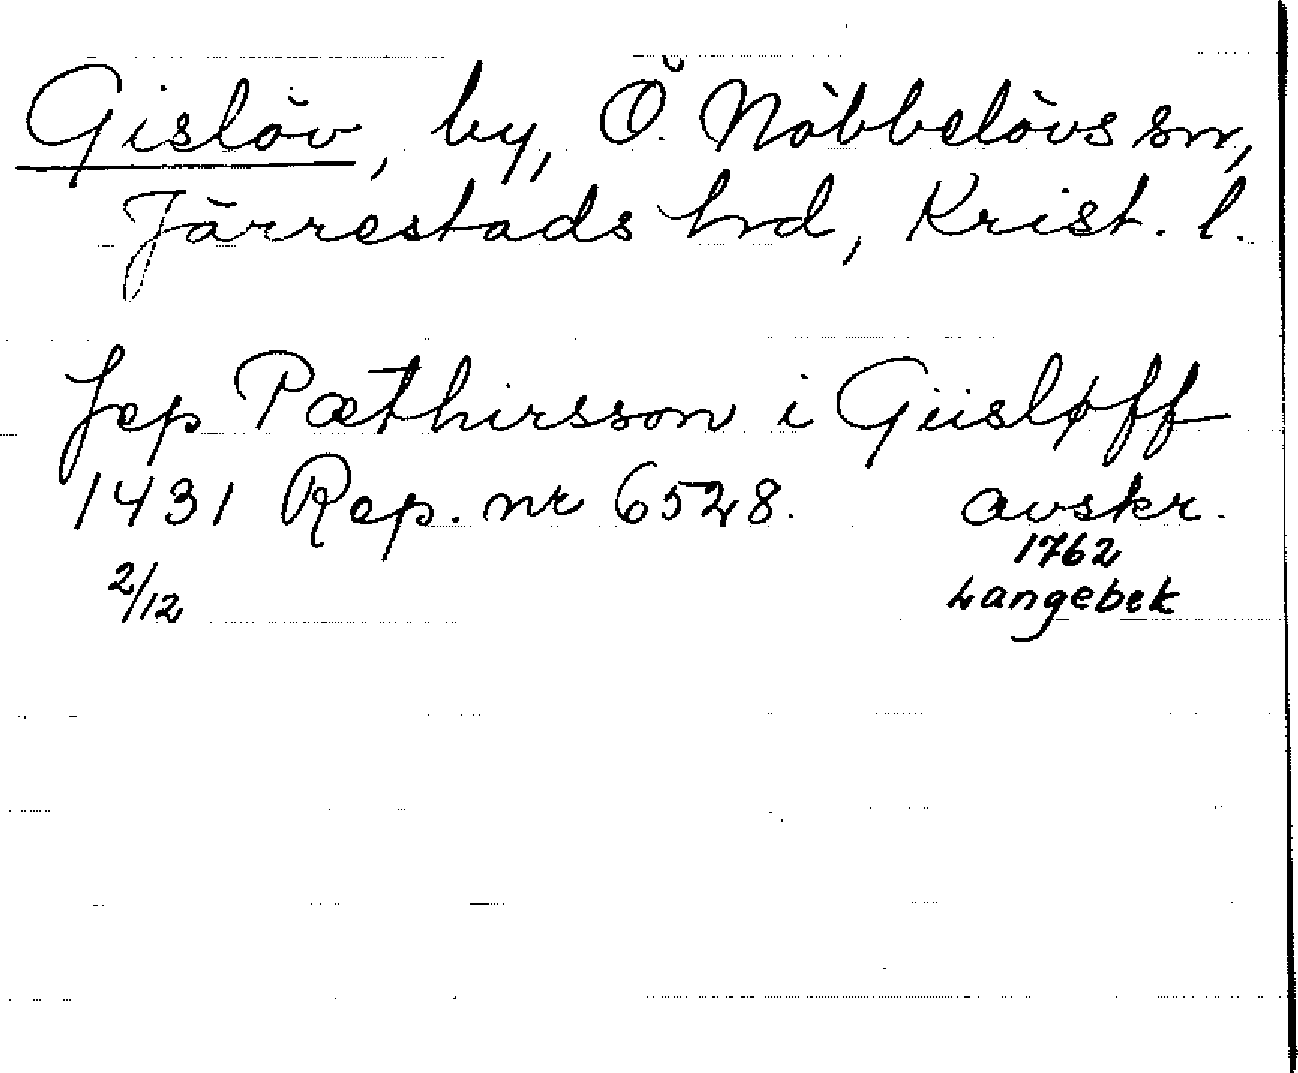 Gislöv, by, Ö. Nöbbelövs sn,
Järrestads hrd, Krist. l.
Jep Pæthirsson i Giisløff
1431 Rep. nr 6528. avskr.
1762
2/12 Langebek